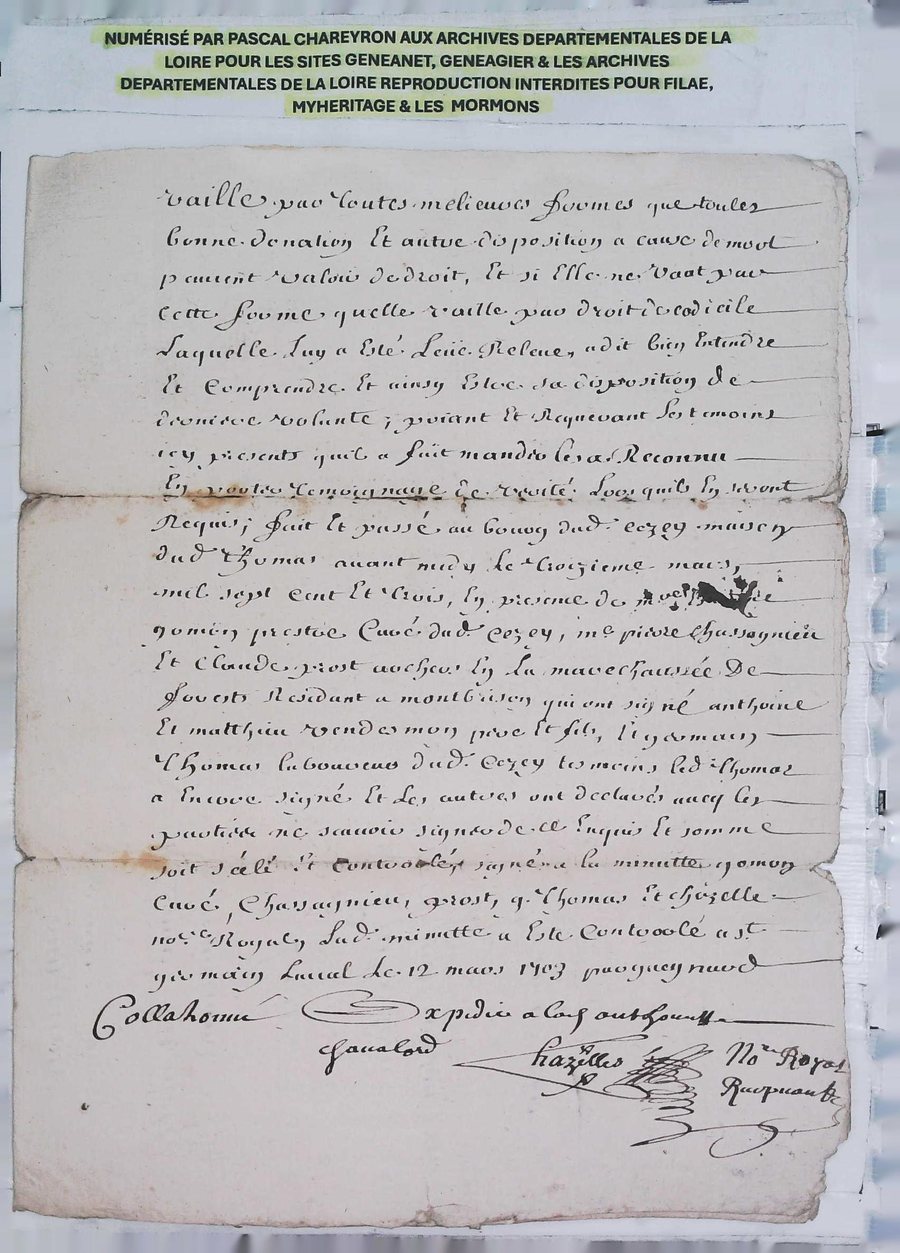 NUMÉRISÉ PAR PASCAL CHAREYRON AUX ARCHIVES DEPARTEMENTALES DE LA
LOIRE POUR LES SITES GENEANET, GENEAGIER & LES ARCHIVES
DEPARTEMENTALES DE LA LOIRE REPRODUCTION INTERDITES POUR FILAE,
MYHERITAGE & LES MORMONS
vaille par toutes melieures formes que toutes
bonne donation Et autre disposition a cause de mort
peuvent valoir de droit, Et si Elle ne vaut par
cette forme quelle vaille par droit de codicile
Laquelle luy a Esté Leüe Releue, a dit bien Entendre
Et Comprendre Et ainsy Estre sa disposition de
derniere volante; priant Et Requerant les temoins
icy presents quil a fait mander les a Reconnu
En porter temoignaire de verité Lors quils En seront
Requis; fait Et passé au bourg dud. Cezey maison
dud. Thomas avant midy le troizieme mars,
mil sept cent Et trois, En presence de
gomon prestre Curé dud. Cezey, me. pierre Chassagnieu
Et Claude prost archer En La marechaussée De
forests Residant a montbrison qui ont signé anthoine
Et matthieu vendesmon pere Et fils, Et germain
Thomas laboureur dud. Cezey temoins led. Thomas
a Encore signé Et Les autres ont declarés avecq les
parties ne scavoir signer de ce Enquis Et somme
soit sçélé Et Controolés signé a la minutte gomon
Curé, Chassagnieu, prost, g. Thomas Et chazelle
nore. Royal, Lad. minutte a Este Controolé a st.
germain Laval Le 12 mars 1703 par gueynard
Collationné Expedié a
chavalard Chazelles Nore Royal